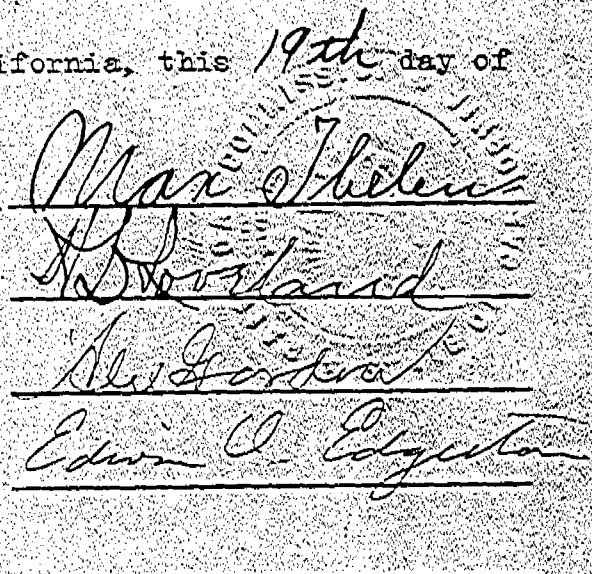 ifornia, this 19th day of
Max Thelen
H. D. Loveland
Alex Gordon
Edwin O. Edgerton